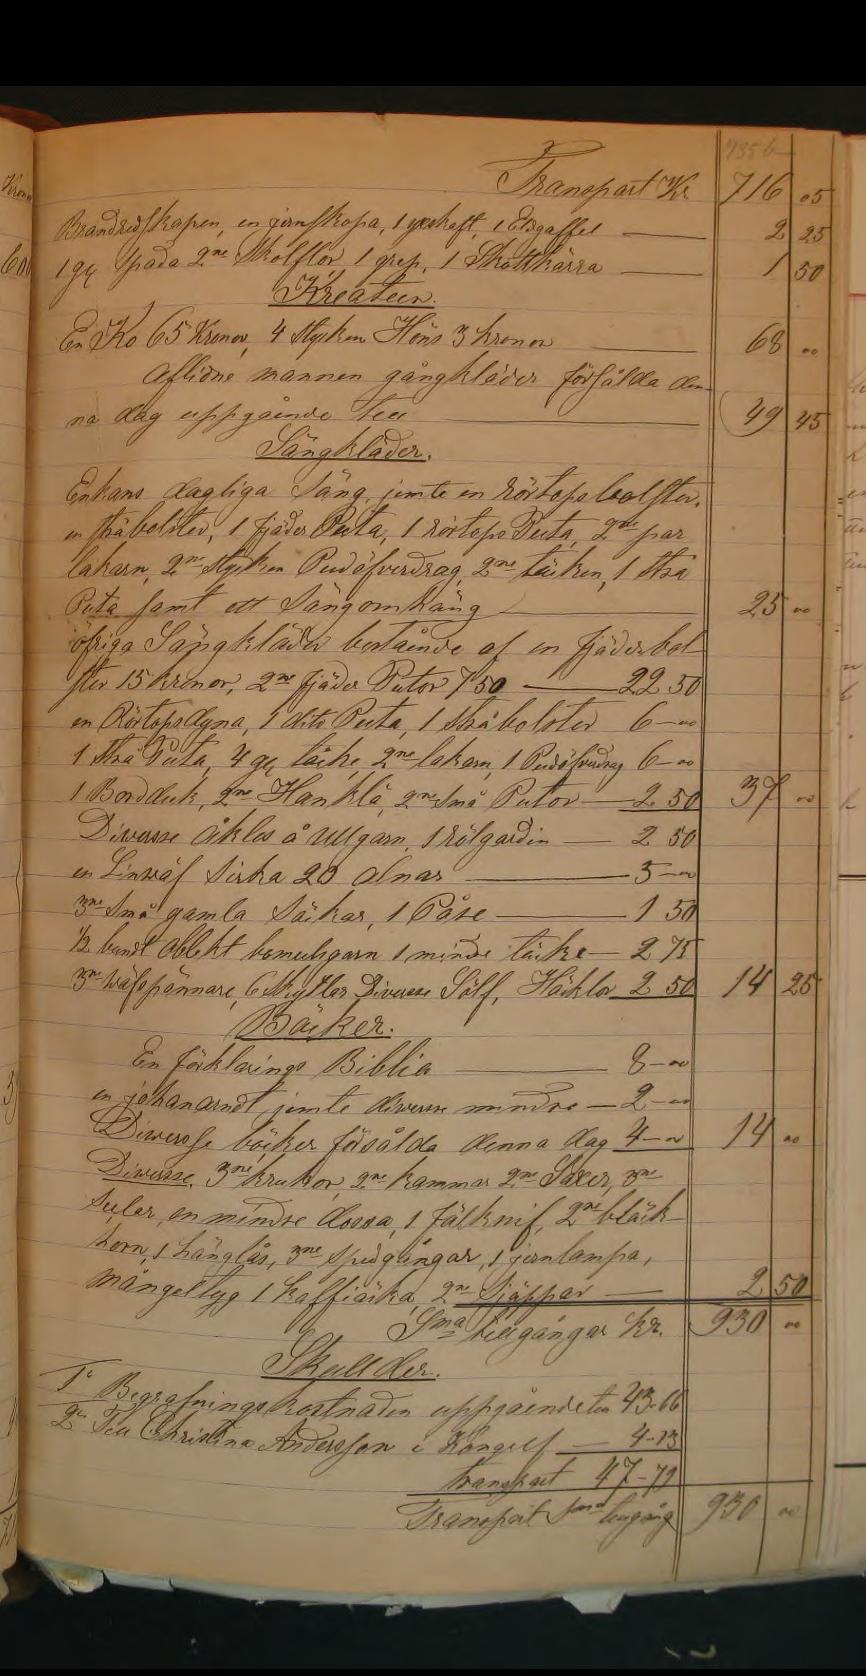 Transport Kr 716 05
Brandredskapen, en jernskopa, 1 yxskaft, 1 Eldgaffel — 2 25
1 gl spada 2ne skolflor 1 grep, 1 Skottkärra — 1 50
Kreatur.
En Ko 65 Kronor, 4 stycken Höns 3 kronor — 68 "
Aflidne mannen gångkläder försålda den-
na dag uppgående till — 49 45
Sängkläder.
Enkans dagliga säng, jemte en Rörtopsbolster,
en stråbolster, 1 fjäder Puta, 1 rörtops Puta, 2ne par
lakarn, 2ne stycken Pudöfverdrag, 2ne täcken, 1 strå
Puta samt ett sängomhäng — 25 "
öfriga Sängkläder bestående af en fjäderbol-
ster 15 kronor, 2ne fjäder Putor 7 50 — 22 50
en Rörtopsdyna, 1 dito Puta, 1 stråbolster 6 — "
1 strå Puta, 4 gl täcke, 2ne lakarn, 1 Pudöfverdrag 6 — "
1 Bordduk, 2ne Hanklä, 2ne små Putor — 2 50 37 "
Diverse åklas å Ullgarn, 1 rölgardin — 2 50
en Linwäf sirka 20 alnar — 5 — "
3ne små gamla säckar, 1 Påse — 1 50
1/2 bundt oblekt bomulsgarn 1 mindre täcke — 2 75
3ne wäfspännare, 6 skyttlar Diverse Sölf, Häcklor 2 50 14 25
Böcker.
En förklarings Biblia — 8 — "
en johanarndt, jemte diverse mindre — 2 — "
Diverse böcker försålda denna dag 4 — " 14 "
Diverse. 3ne krukor, 2ne kammar 2ne Saxer, 3ne
seelar, en mindre dossa, 1 fälknif, 2ne bläck-
horn, 1 hänglås, 3ne spegångar, 1 jernlampa,
mångeltyg 1 kaffiaska, 2ne — 2 50
Sma tillgångar kr. 930 "
Skullder.
1o Begrafningskostnaden uppgåendetill 43-66
2o Till Christina Andersson i Kongelf — 4-13
transport 47-79
Transport Sma tillgång 930 "